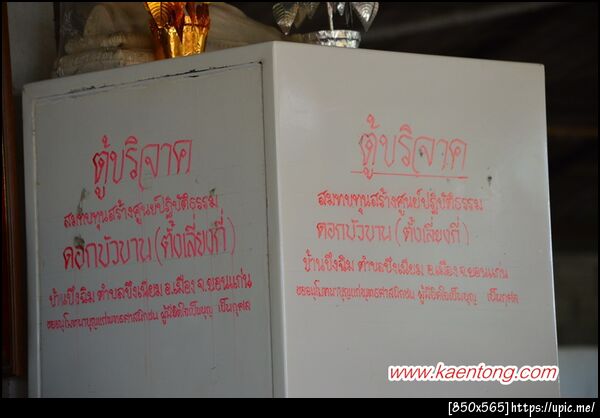 ตู้บริจาค
สมทบทุนสร้างศูนย์ปฏิบัติธรรม
ดอกบัวบาน (ตั้งเลี่ยงกี่)
บ้านบึงฉิม ตำบลบึงเนียม อ.เมือง จ.ขอนแก่น
ขออนุโมทนาบุญแก่พุทธศาสนิกชน ผู้มีจิตใจเป็นบุญ เป็นกุศล
ตู้บริจาค
สมทบทุนสร้างศูนย์ปฏิบัติธรรม
ดอกบัวบาน (ตั้งเลี่ยงกี่)
บ้านบึงฉิม ตำบลบึงเนียม อ.เมือง จ.ขอนแก่น
ขออนุโมทนาบุญแก่พุทธศาสนิกชน ผู้มีจิตใจเป็นบุญ เป็นกุศล
www.kaentong.com
[850x565]https://upic.me/